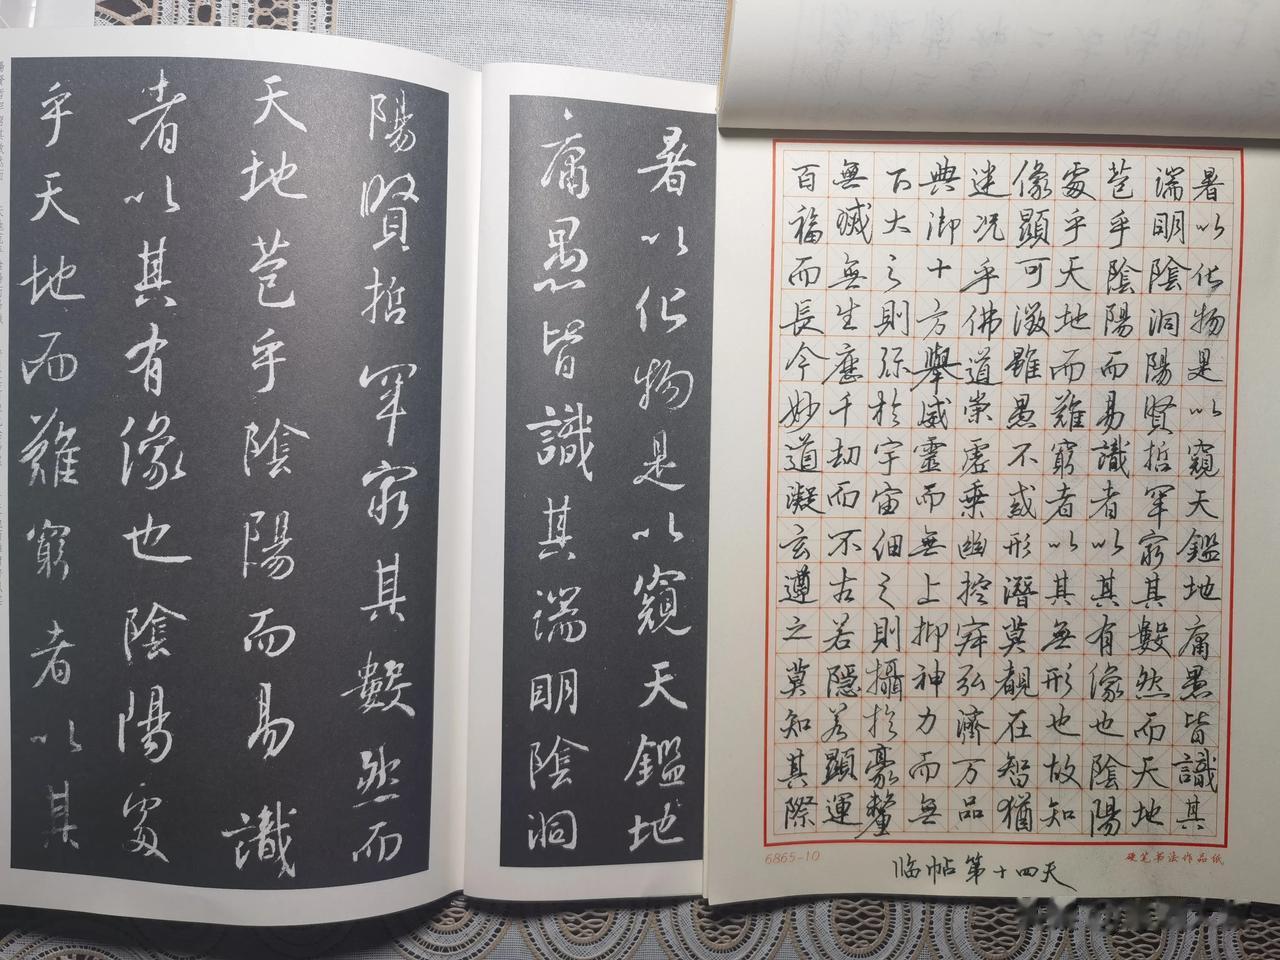 暑以化物是以窺天鑑地
庸愚皆識其端明陰洞
陽賢哲罕窮其數然而
天地苞乎陰陽而易識
者以其有像也陰陽處
乎天地而難窮者以其
暑以化物是以窺天鑑地庸愚皆識其
端明陰洞陽賢哲罕窮其數然而天地
苞乎陰陽而易識者以其有像也陰陽
處乎天地而難窮者以其無形也故知
像顯可徵雖愚不惑形潛莫覩在智猶
迷況乎佛道崇虛乘幽控寂弘濟万品
典御十方舉威靈而無上抑神力而無
下大之則彌於宇宙細之則攝於豪釐
無滅無生歷千劫而不古若隱若顯運
百福而長今妙道凝玄遵之莫知其際
6865-10
硬笔书法作品纸
临帖第十四天